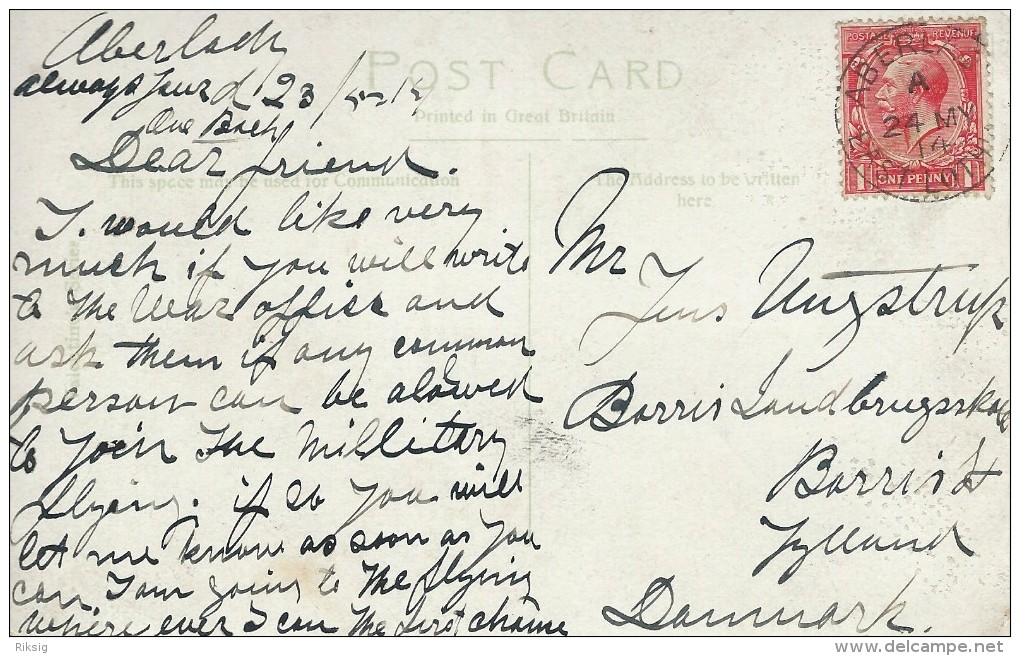 Aberlady
always Jens d 23/5-14
One Back
POST CARD
Printed in Great Britain
Dear friend.
This space may be used for Communication
The Address to be written
here.
I. would like very
much if you will write
to the War office and
ask them if any common
person can be alowed
to join the Millitary
flying. if so you will
let me know as soon as you
can. I am going to the flying
where ever I can the first chanse
Mr
Jens Ungstrup
Borris Landbrugsskole
Borris St
Jylland
Danmark.
POSTAGE REVENUE
ABERL
A
24 MY
14
ONE PENNY
Riksig
www.delcampe.net